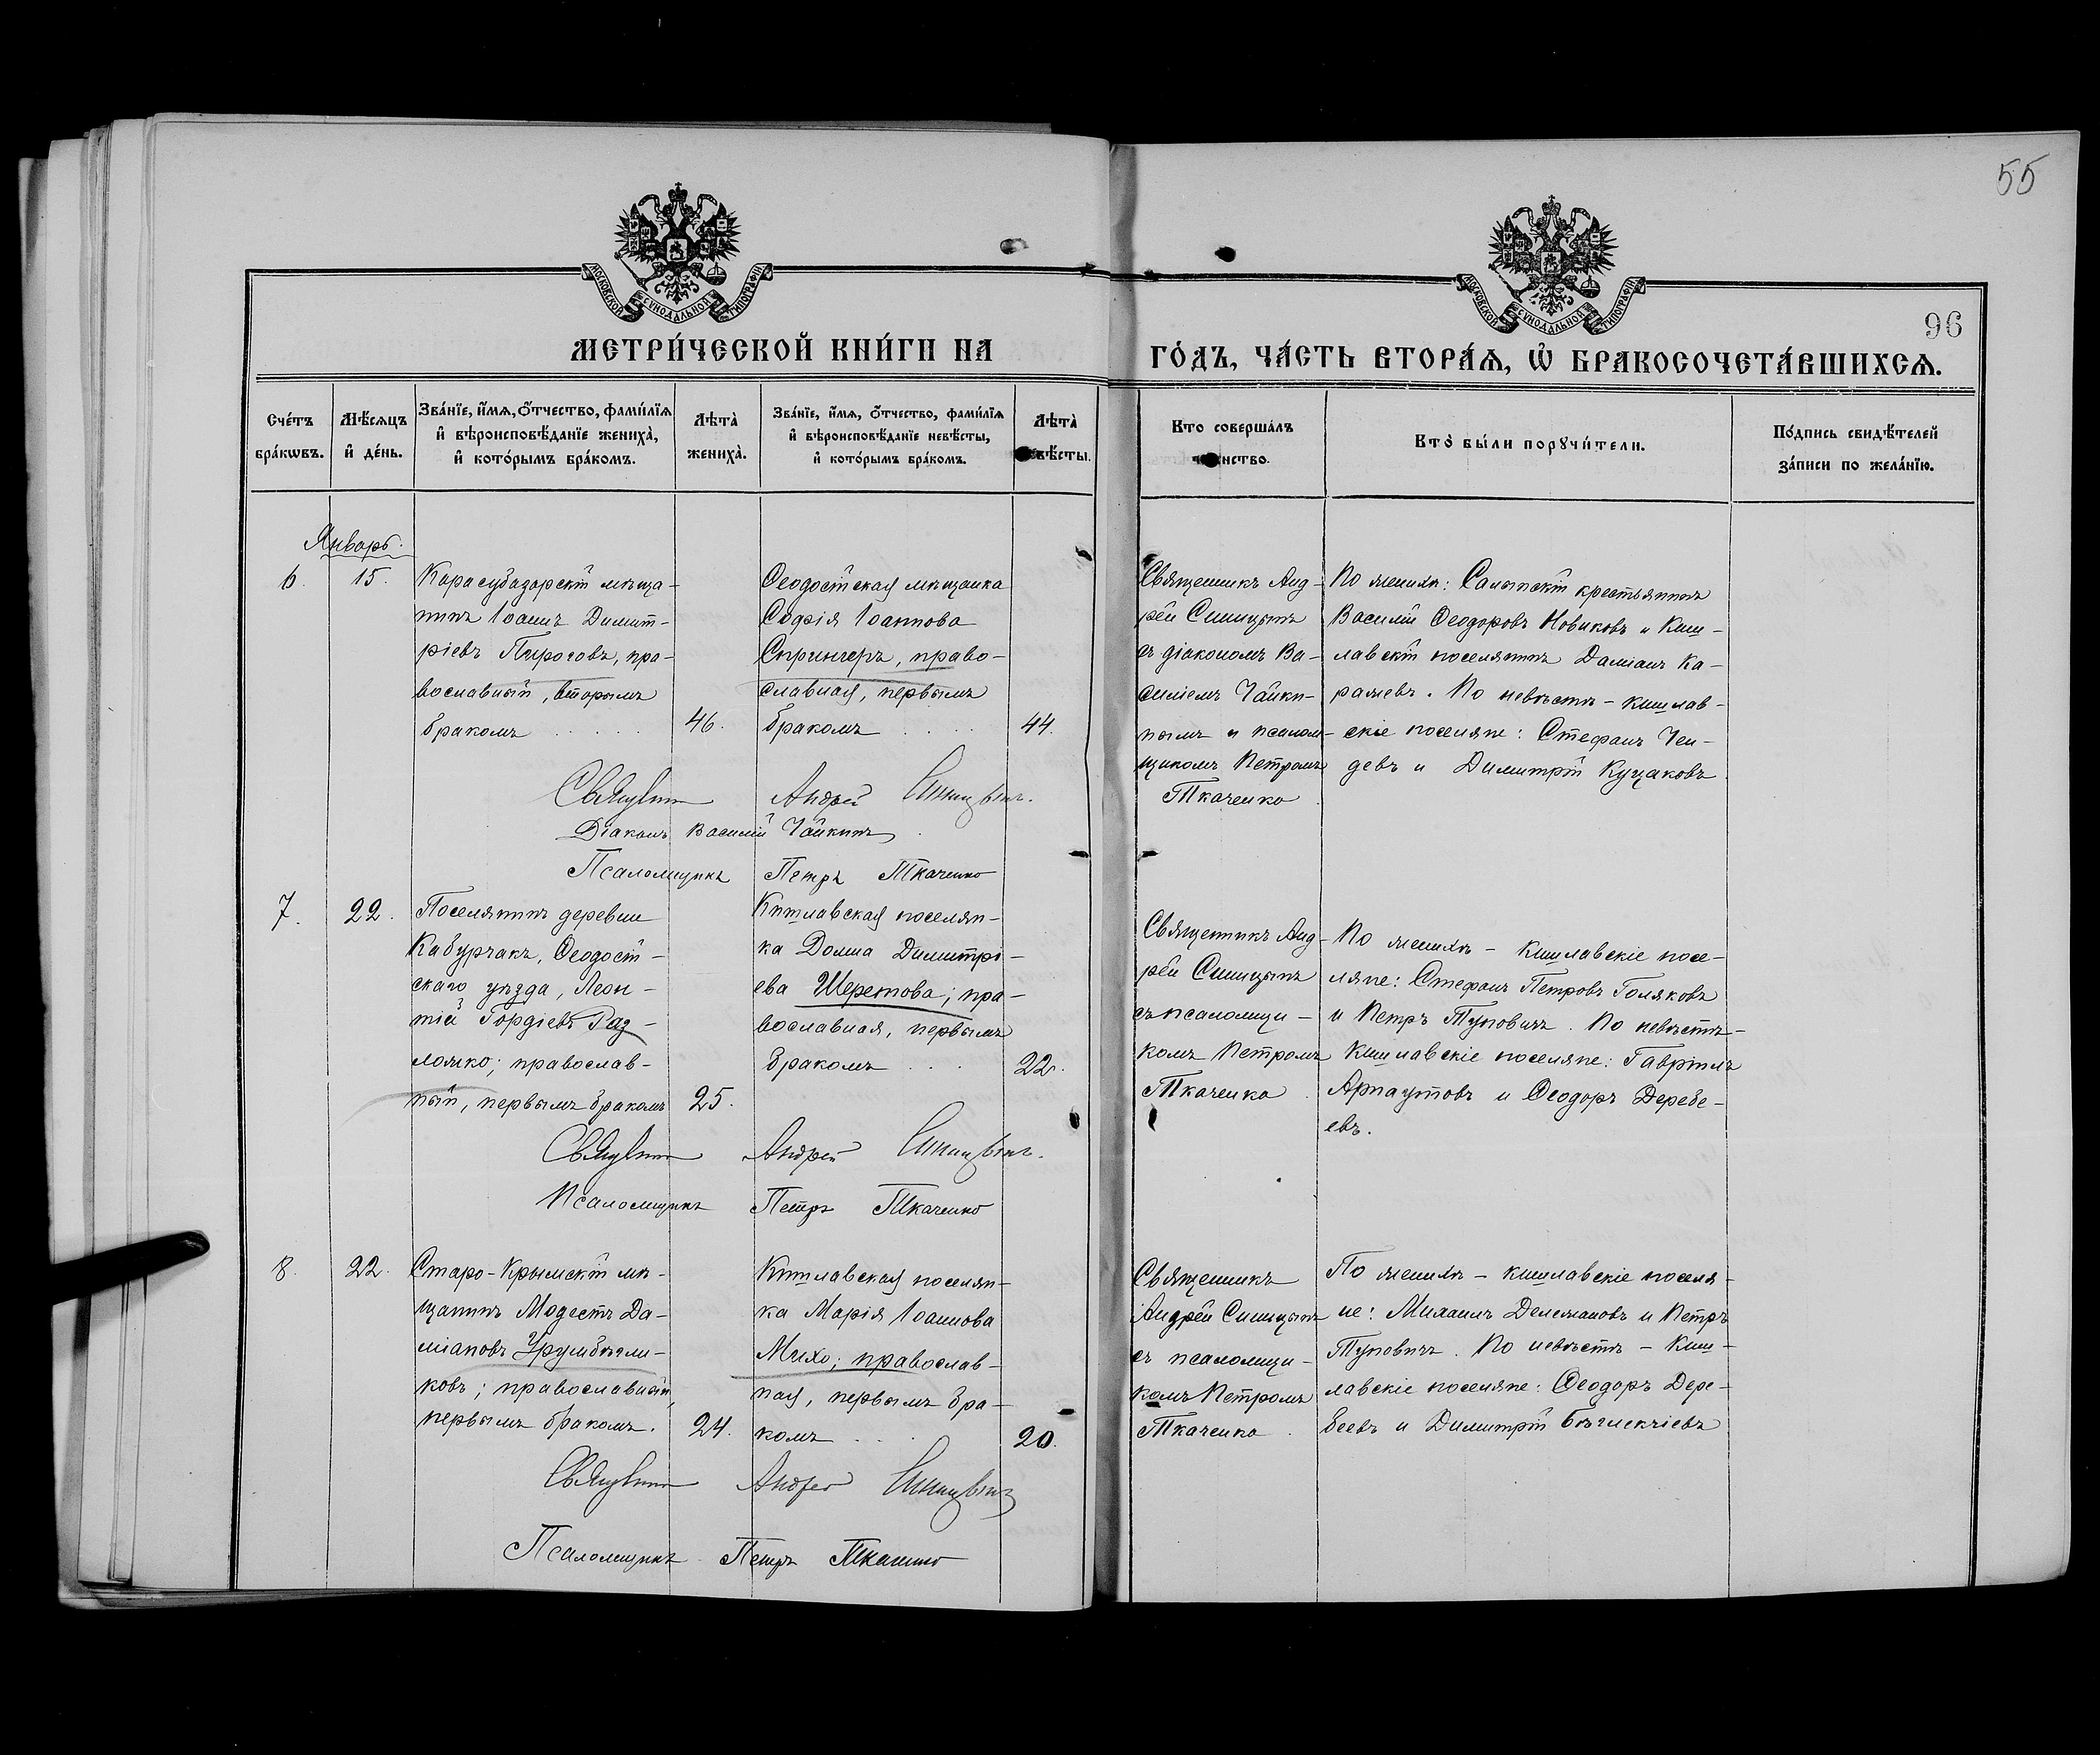 55
96
МОСКОВСКОЙ СѴНОДАЛЬНОЙ ТИПОГРАФІИ
МОСКОВСКОЙ СѴНОДАЛЬНОЙ ТИПОГРАФІИ
МЕТРИ́ЧЕСКОЙ КНИ́ГИ НА
ГО́ДЪ, ЧА́СТЬ ВТОРА́Ѧ, Ѡ҆ БРАКОСОЧЕТА́ВШИХСѦ.
Сче́тъ
бра́кѡвъ.
Мѣ́сѧцъ
и҆ де́нь.
Зва́нїе, и҆́мѧ, ѻ҆́тчество, фами́лїѧ
и҆ вѣроисповѣ́данїе жениха̀,
и҆ кото́рымъ бра́комъ.
Лѣта̀
жениха̀.
Зва́нїе, и҆́мѧ, ѻ҆́тчество, фами́лїѧ
и҆ вѣроисповѣ́данїе невѣ́сты,
и҆ кото́рымъ бра́комъ.
Лѣта̀
невѣ́сты.
Кто соверша́лъ
таинство.
Кто̀ бы́ли порꙋчи́тели.
По́дпись свидѣ́телей
за́писи по жела́нїю.
Январь.
6.
15.
Карасубазарскій мѣща-
нинъ Іоаннъ Димит-
ріевъ Пироговъ, пра-
вославный, вторымъ
бракомъ
46.
Ѳеодосійская мѣщанка
Софія Іоаннова
Спрингеръ, право-
славная, первымъ
бракомъ
44.
Священникъ Анд-
рей Синицынъ
съ діакономъ Ва-
силіемъ Чайки-
нымъ и псалом-
щикомъ Петромъ
Ткаченко
По женихѣ: Салынскій крестьянинъ
Василій Ѳеодоровъ Новиковъ и Киш-
лавскій поселянинъ Даміанъ Ка-
ражевъ. По невѣстѣ - кишлав-
скіе поселяне: Стефанъ Чен-
девъ и Димитрій Куцаковъ
Священникъ Андрей Синицынъ.
Діаконъ Василій Чайкинъ
Псаломщикъ Петръ Ткаченко
7.
22.
Поселянинъ деревни
Кабурчакъ, Ѳеодосій-
скаго уѣзда, Леон-
тій Гордіевъ Раз-
ложко; православ-
ный, первымъ бракомъ
25.
Кишлавская поселян-
ка Домна Димитрі-
ева Шеретова; пра-
вославная, первымъ
бракомъ
22.
Священникъ Анд-
рей Синицынъ
съ псаломщи-
комъ Петромъ
Ткаченко
По женихѣ - кишлавскіе посе-
ляне: Стефанъ Петровъ Голяковъ
и Петръ Туновичъ. По невѣстѣ -
Кишлавскіе поселяне: Гавріилъ
Арнаутовъ и Ѳеодоръ Деребе-
евъ.
Священникъ Андрей Синицынъ.
Псаломщикъ Петръ Ткаченко
8.
22.
Старо-Крымскій мѣ-
щанинъ Модестъ Да-
міановъ Урумбѣгли-
ковъ; православный,
первымъ бракомъ.
24.
Кишлавская поселян-
ка Марія Іоаннова
Михо; православ-
ная, первымъ бра-
комъ
20.
Священникъ
Андрей Синицынъ
съ псаломщи-
комъ Петромъ
Ткаченко
По женихѣ - кишлавскіе поселя-
не: Михаилъ Дележановъ и Петръ
Туновичъ. По невѣстѣ - Киш-
лавскіе поселяне: Ѳеодоръ Дере-
беевъ и Димитрій Бѣглекчіевъ
Священникъ Андрей Синицынъ
Псаломщикъ Петръ Ткаченко